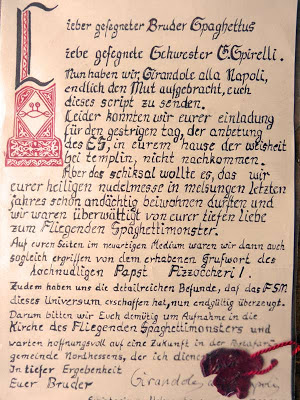 Lieber gesegneter Bruder Spaghettus
Liebe gesegnete Schwester E. Spirelli.
Nun haben wir, Girandole alla Napoli,
endlich den Mut aufgebracht, euch
dieses script zu senden.
Leider konnten wir eurer einladung
für den gestrigen tag, der anbetung
des ES, in eurem hause der weisheit
bei templin, nicht nachkommen.
Aber das schiksal wollte es, das wir
eurer heiligen nudelmesse in melsungen letzten
jahres schon andächtig beiwohnen durften und
wir waren überwältigt von eurer tiefen liebe
zum Fliegenden Spaghettimonster.
Auf euren Seiten im neuartigen Medium waren wir dann auch
sogleich ergriffen von dem erhabenen Grußwort des
Hochnudligen Papst Pizzoccheri I.
Zudem haben uns die detailreichen Befunde, daß das FSM
dieses Universum erschaffen hat, nun endgültig überzeugt.
Darum bitten wir Euch demütig um Aufnahme in die
Kirche des Fliegenden Spaghettimonsters und
warten hoffnungsvoll auf eine Zukunft in der
gemeinde Nordhessens, der ich diene
In tiefer Ergebenheit
Euer Bruder Girandole